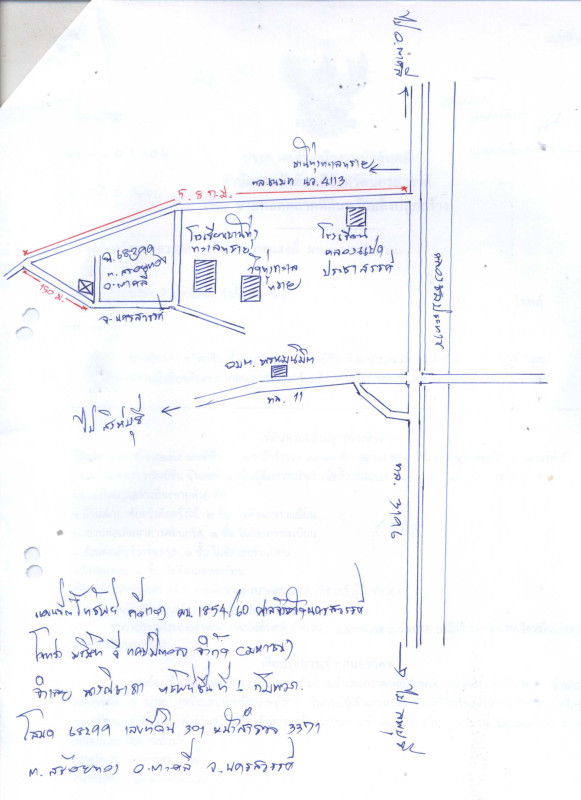 ไป อ.ตาคลี
บ้านทุ่งทะเลทราย
ทล.ชนบท นว.4113
5.8 ก.ม.
โรงเรียนบ้านทุ่ง
ทะเลทราย
วัดทุ่งทะเล
ทราย
โรงเรียน
คลอง
ประชาสรรค์
ฉ.68299
ต.สร้อยทอง
อ.ตาคลี
จ.นครสวรรค์
150 ม.
คลองชลประทาน
อบต. พรหมนิมิต
ทล. 11
ไปสิงห์บุรี
ทล. 3196
ไป ลพบุรี
แผนที่ ทรัพย์ คดีแดง ผบ.1854/60 ศาลจังหวัดนครสวรรค์
โจทก์ บริษัท จี แคปปิตอล จำกัด (มหาชน)
จำเลย ทรัพย์ที่
โฉนด 68299 เลขที่ดิน 301 หน้าสำรวจ 3371
ต. สร้อยทอง อ.ตาคลี จ.นครสวรรค์